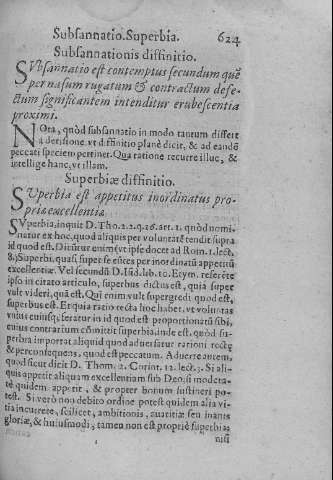 Subsannatio. Superbia. 624
Subsannationis diffinitio.
SVbsannatio est contemptus secundum quē
per nasum rugatum & contractum defe-
ctum significantem intenditur erubescentia
proximi.
NOta, quòd subsannatio in modo tantum differt
à derisione, vt diffinitio planè dicit, & ad eandē
peccati speciem pertinet. Qua ratione recurre illuc, &
intellige hanc, vt illam.
Superbiæ diffinitio.
SVperbia est appetitus inordinatus pro-
priæ excellentiæ
SVperbia, inquit D. Tho. 2. 2. q. 26. art. 1. quòd nomi-
natur ex hoc, quod aliquis per voluntatē tendit supra
id quod est. Dicitur enim (vt ipse docet ad Rom. 1. lect.
8.) Superbi, quasi super se eūtes per inordinatū appetitū
excellentiæ. Vel secundū D. Isid. lib. 10. Etym. referēte
ipso in citato articulo, superbus dictus est, quia super
vult videri, quā est. Qui enim vult supergredi quod est,
superbus est. Et quia ratio recta hoc habet, vt voluntas
vniuscuiusq; feratur in id quod est proportionatū sibi,
cuius contrarium cōmittit superbia, inde est, quòd su-
perbia importat aliquid quod aduersatur rationi rectę
& per consequens, quòd est peccatum. Aduerte autem,
quòd sicut dicit D. Thom. 2. Corint. 12. lect. 3. Si ali-
quis appetit aliquam excellentiam sub Deo, si modera-
tè quidem appetit, & propter bonum sustineri po-
test. Si verò non debito ordine potest quidem alia vi-
tia incurrere, scilicet, ambitionis, auaritiæ seu inanis
gloriæ, & huiusmodi, tamen non est propriè superbia,
nisi